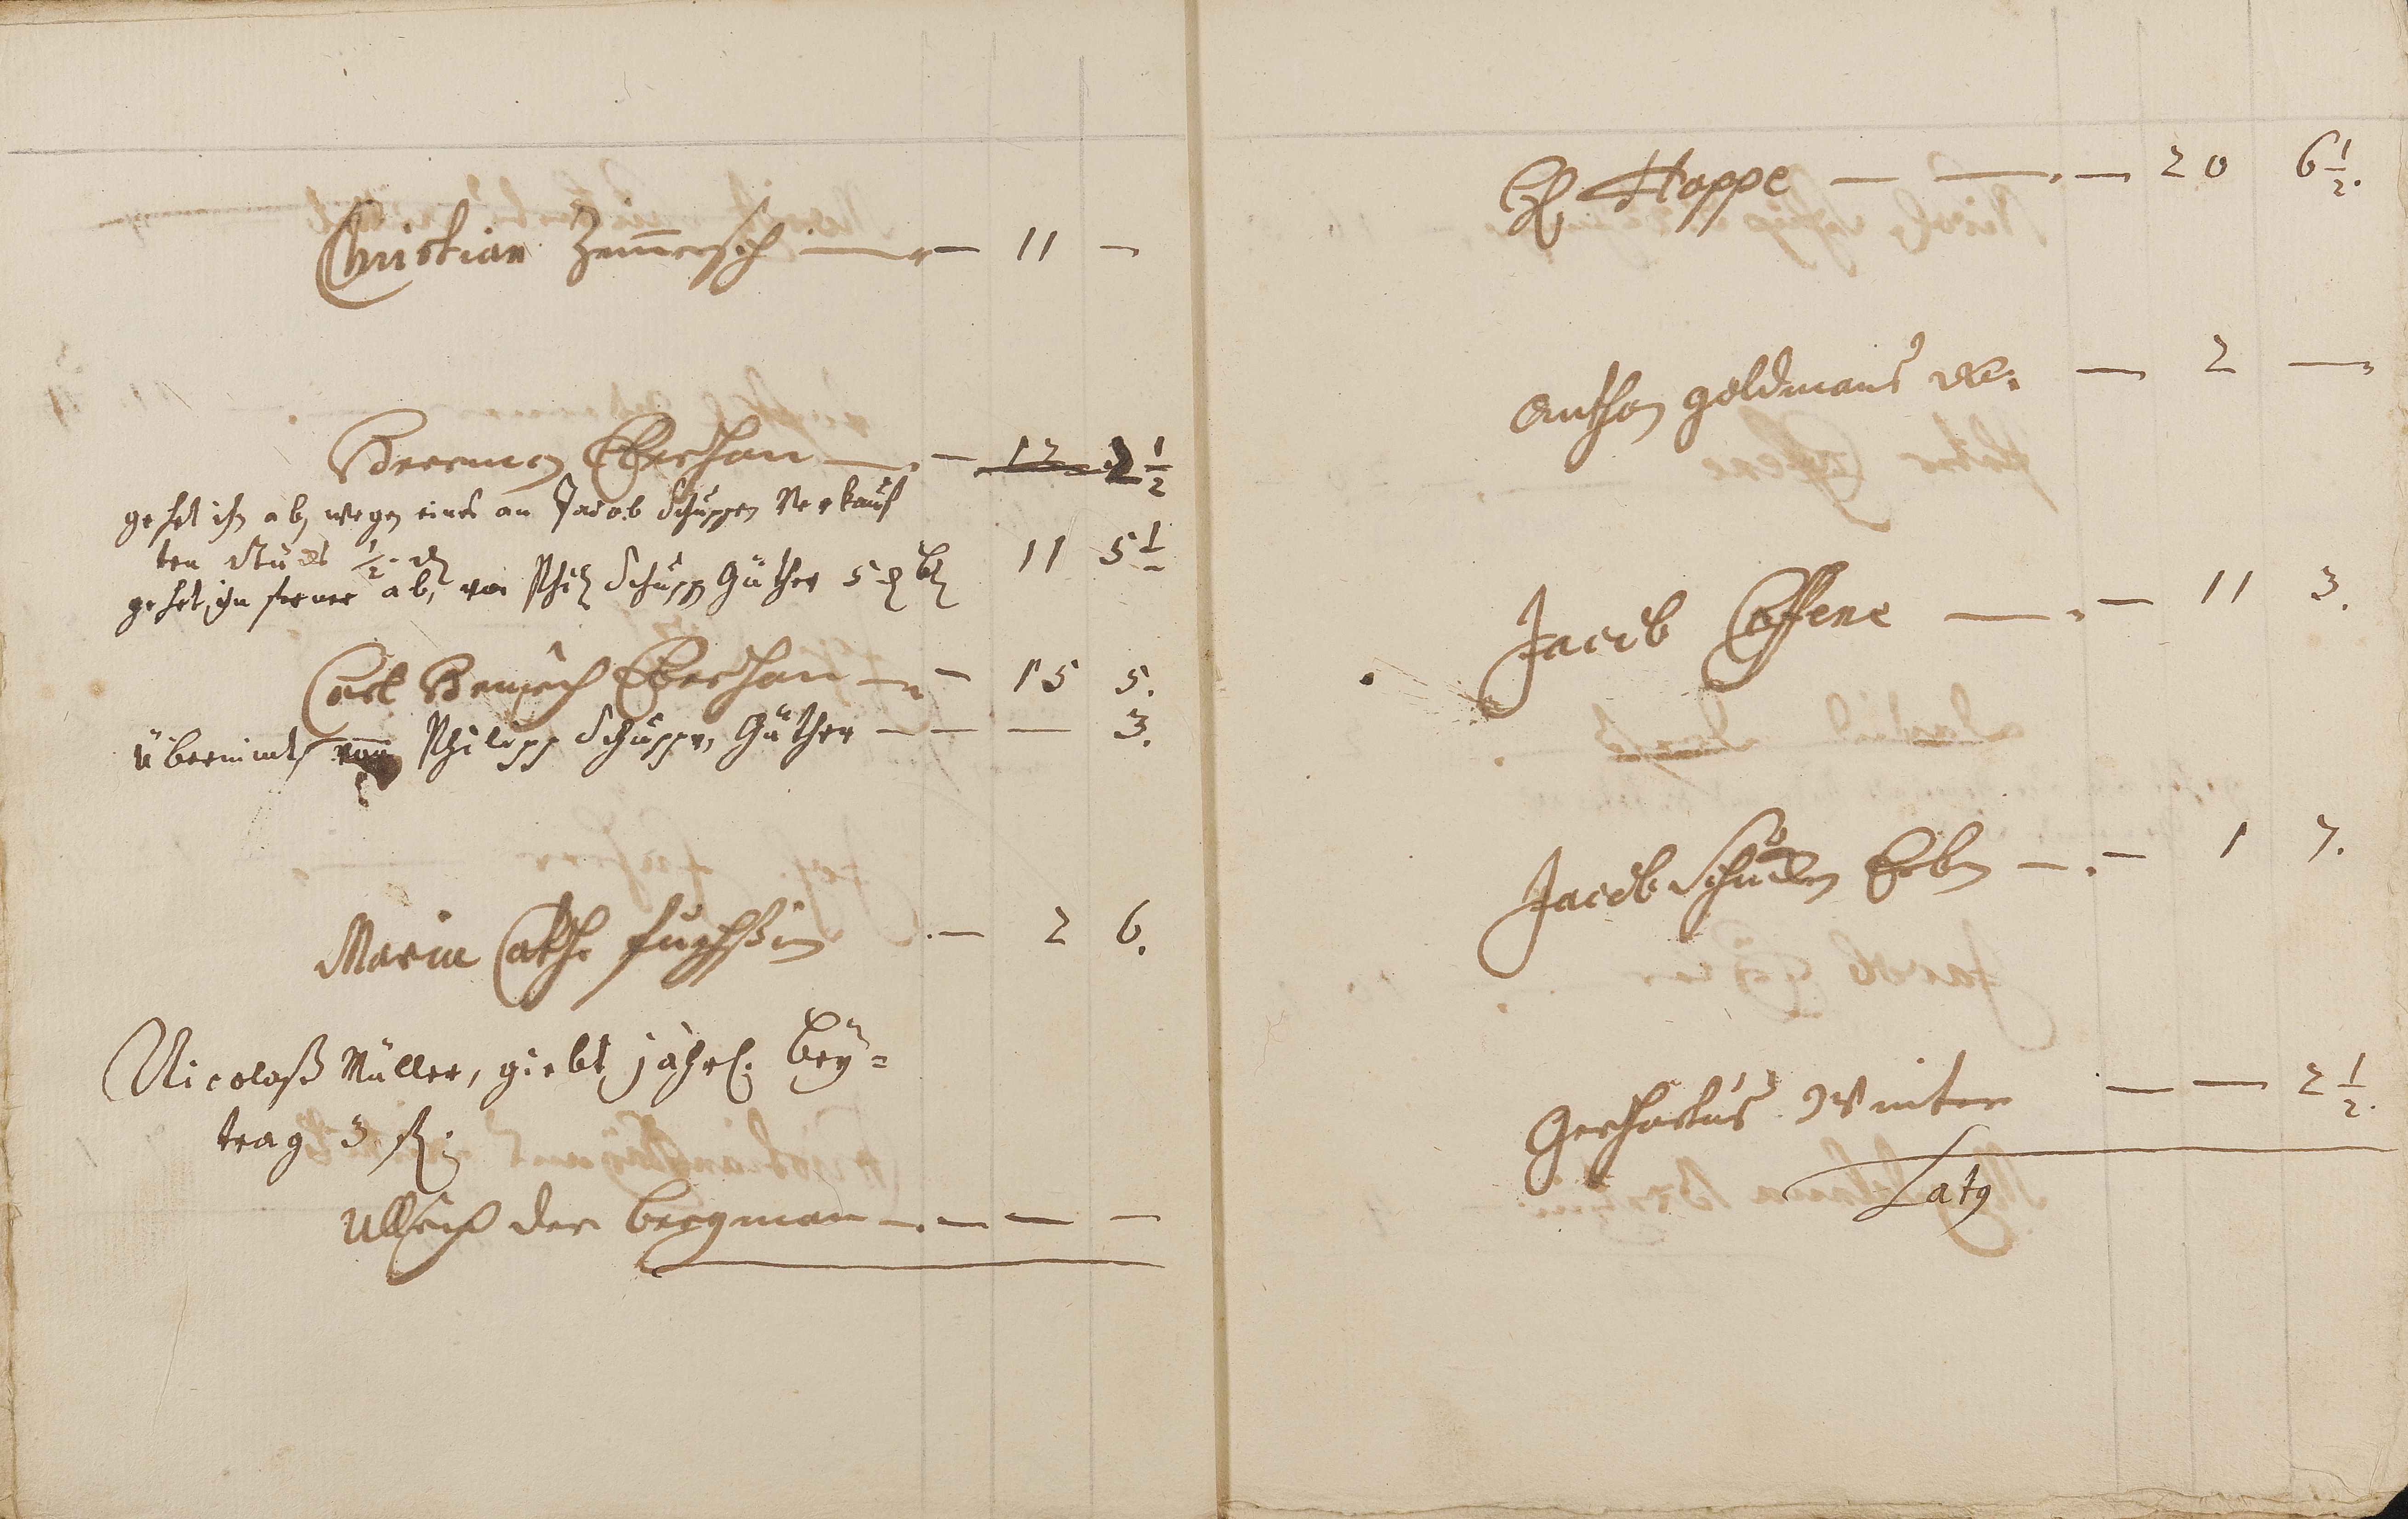 Christian Zimmersch — — 11 —
Eberhan — 12 2 1/2
gehet ihm ab wegen eines an Jacob Schuppen Verkauf
ten Stücks 1/2
gehet ihm ferner ab, von Phil Schupp Güther 5 11 5 1/2
Carl Eberhan — — 15 5.
übernimbt von Philipp Schuppen Güther — — — 3.
Maria Cath. Fuchßin — 2 6.
Nicolaß Müller, giebt jährl. Bey=
trag 3
Ullrich der bergman — — — —
Hoppe — — — 20 6 1/2.
Anthon goldmans — 2 —
Jacob — — 11 3.
Jacob Erben — — 1 7.
Gerhartus Winter — — 2 1/2.
Latg